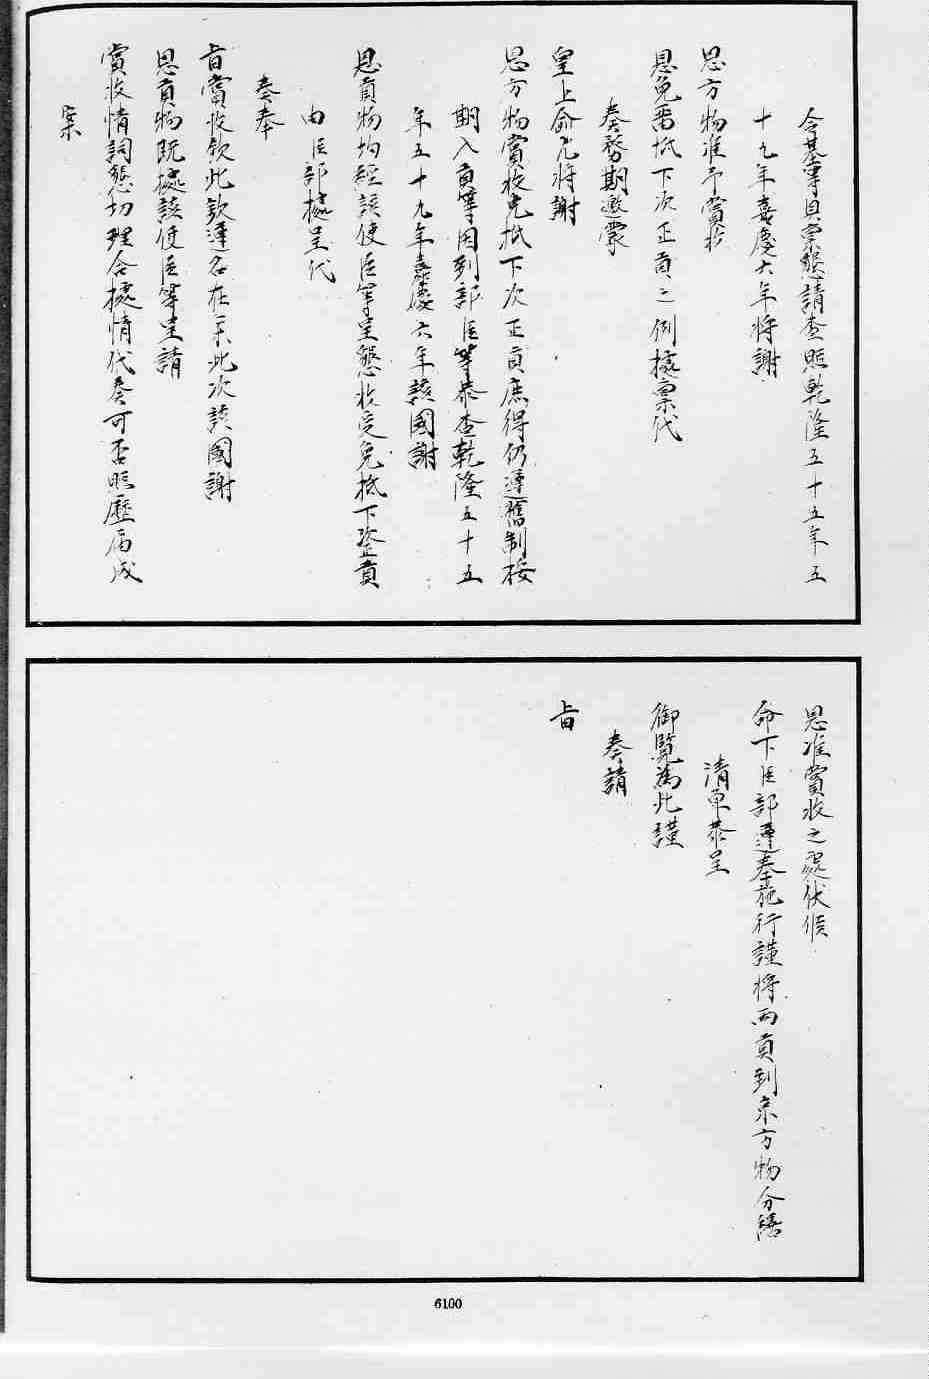 令基等具稟懇請查照乾隆五十五年五
十九年嘉慶六年將謝
恩方物准予賞收
恩免留抵下次正貢之例據稟代
奏務期邀蒙
皇上俞允將謝
恩方物賞收免抵下次正貢庶得仍遵舊制按
期入貢等因到部臣等恭查乾隆五十五
年五十九年嘉慶六年該國謝
恩貢物均經該使臣等呈懇收受免抵下次正貢
由臣部據呈代
奏奉
旨賞收欽此欽遵各在案此次該國謝
恩貢物既據該使臣等呈請
賞收情詞懇切理合據情代奏可否照歷屆成
案
恩准賞收之處伏候
命下臣部遵奉施行謹將兩貢到京方物分繕
清單恭呈
御覽為此謹
奏請
旨
6100